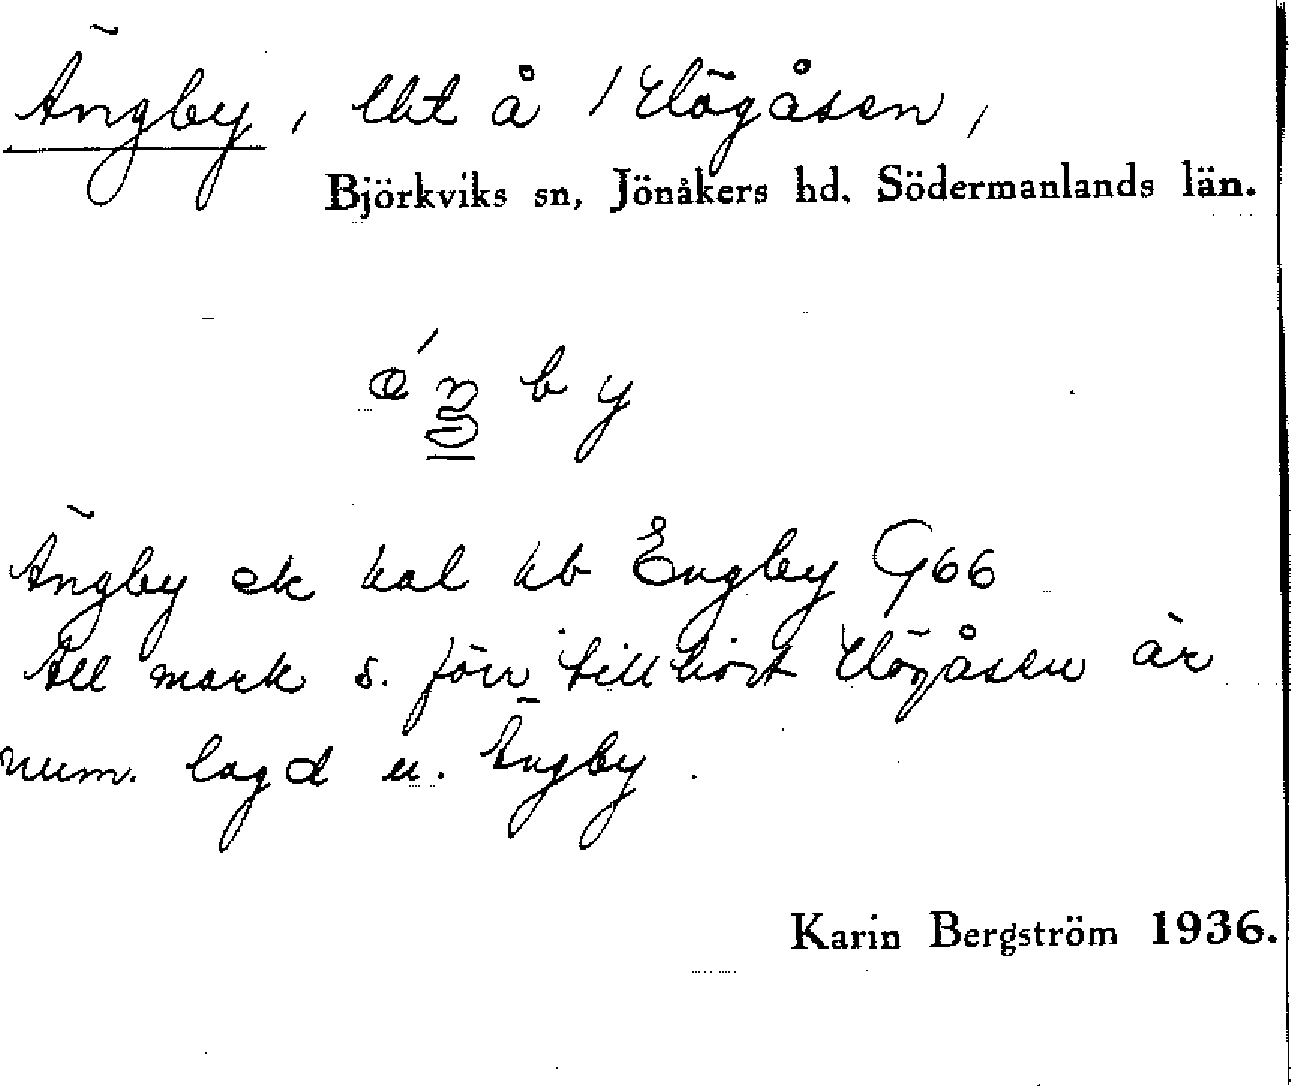 Ängby, lht å Högåsen,
Björkviks sn, Jönåkers hd. Södermanlands län.
ǽŋby
Ängby ek kal hb Engby G66
All mark s. förr tillhört Högåsen är
num. lagd u. Ängby.
Karin Bergström 1936.